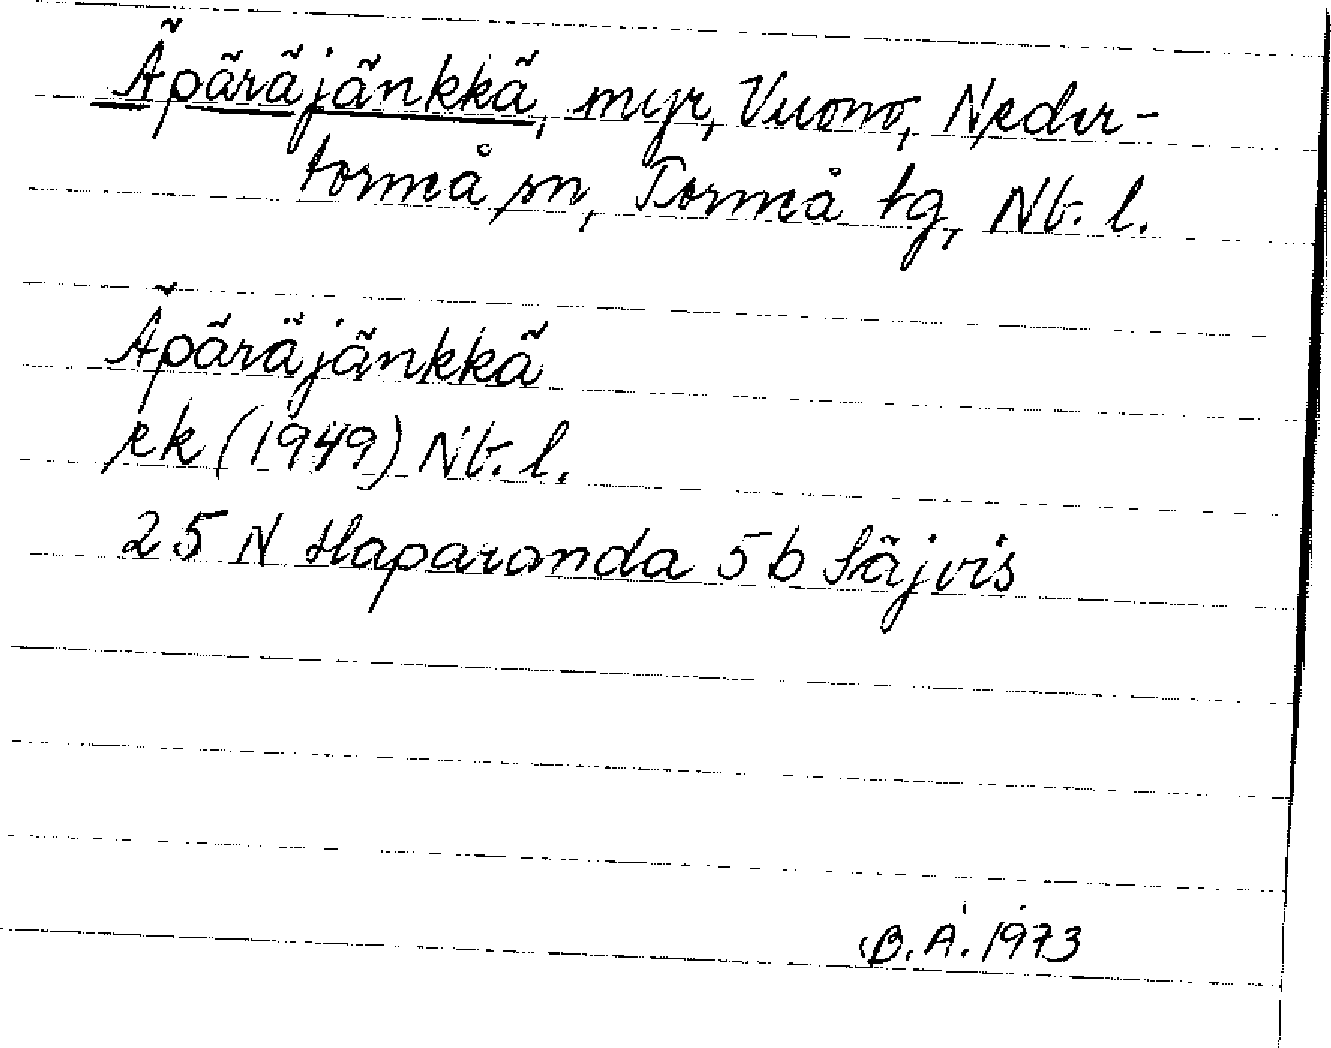 Äpäräjänkkä, myr, Vuono, Neder-
torneå sn, Torneå tg, Nb. l.
Äpäräjänkkä
ek (1949) Nb. l.
25 N Haparanda 5b Säjvis
B.A. 1973